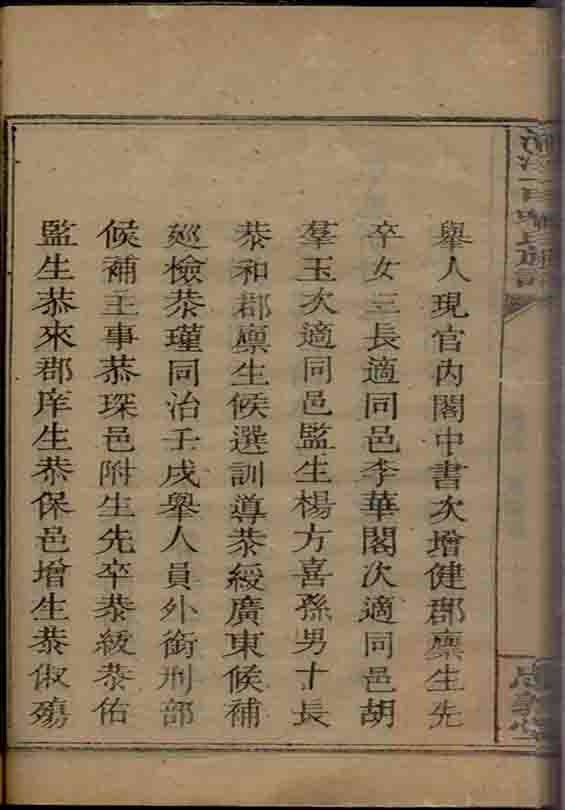 舉人現官內閣中書次增健郡廩生先
卒女三長適同邑李華閣次適同邑胡
羣玉次適同邑監生楊方喜孫男十長
恭和郡廩生候選訓導恭綬廣東候補
廵檢恭瑾同治壬戌舉人員外銜刑部
候補主事恭琛邑附生先卒恭綏恭佑
監生恭來郡庠生恭保邑增生恭俶殤